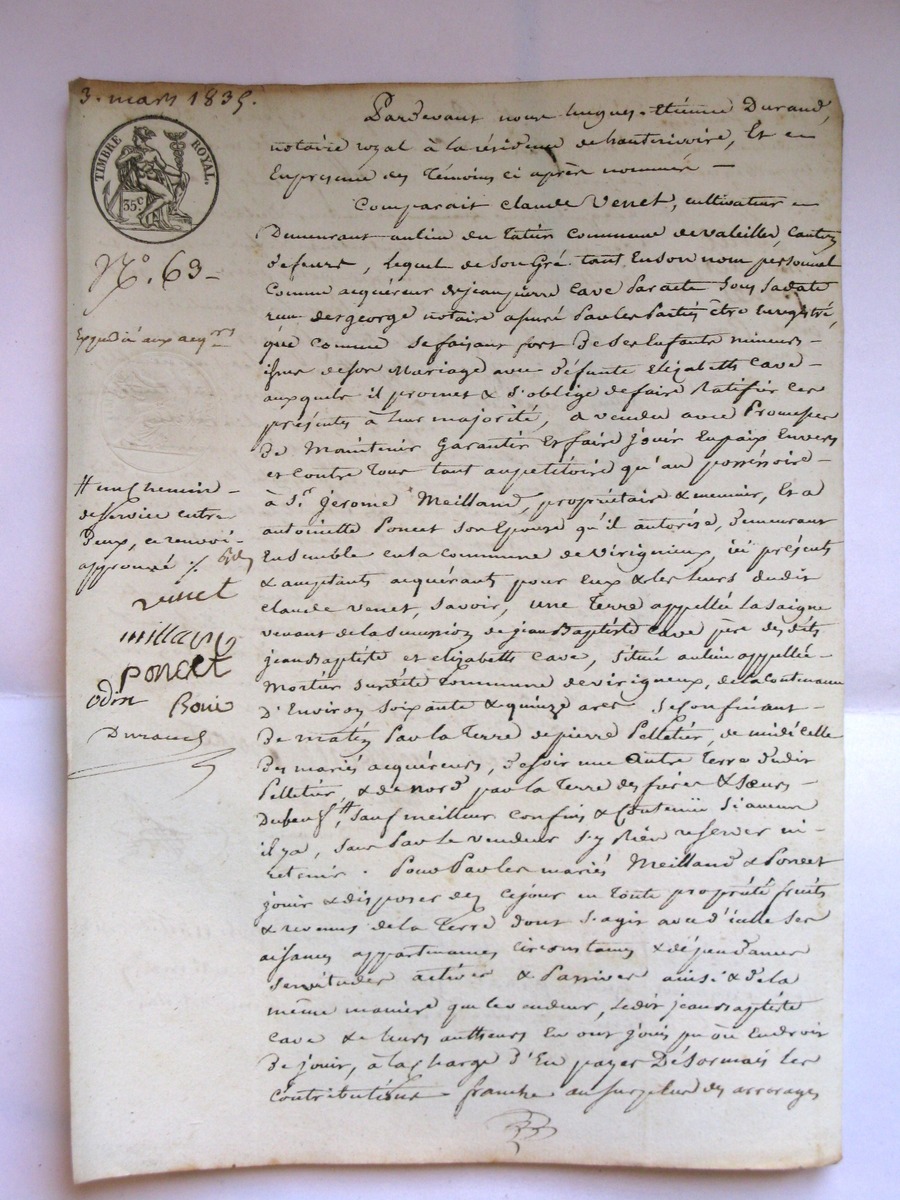 3. mars 1835.
TIMBRE ROYAL.
35c
N°. 63 -
Expedié aux acqrs
# un chemin -
de service entre
deux, ce renvoi -
approuvé ./.
venet
milland
poncet
odin Boui
Durand
Pardevant nous hugues-Etienne Durand,
notaire royal à la résidence de hauterivoire, Et en
Enpresence des Témoins ci après nommés -
Comparait claude Venet, cultivateur
Demeurant aulieu du Tatin Commune de valeille, canton
defeurs, lequel de Son Gré tant En son nom personnel
Comme acquéreur de jeanpierre Cave Par acte Sous Sa date
recu des george notaire assuré Par les Parties être Enregistré,
que Comme Se faisant fort De Ses Enfants mineurs -
issus de Son Mariage avec Défunte Elizabeth Cave -
auxquels il promet & S'oblige defaire Ratifier ces
présentes à leur majorité, a vendu avec Promesse
De Maintenir Garantir Et faire jouir Enpaix Envers
et Contre Tous tant aupetitoire qu'au possessoire -
à Sr. jerome Meilland, propriétaire & meunier, Et a
antoinette Poncet Son Epouse qu'il autorise, Demeurant
Ensemble en la Commune de Virigneux, ici présents
& acceptants acquérants pour Eux & les leurs dudit
Claude venet, Savoir, une Terre appellée La Saigne
venant de la Succession de jeanBaptiste Cave père des dits
jeanBaptiste et elizabeth Cave, Située aulieu appellé -
Mortier Surdite Commune de virigneux, de la Contenance
D'Environ Soixante & quinze ares Se Confinant -
De matin Par la Terre de pierre Pelletier, de midi Celle
Des mariés acquéreurs, De soir une Autre Terre Dudit
Pelletier, & de Nord par la Terre des frères & Soeurs -
Dubeuf #, Sauf meilleur Confins & Contenue Si aucun
il y a, Sans Par le vendeur S'y Rien reserver ni -
retenir. Pour Par les mariés Meilland & Poncet
jouir & disposer des Cejour en Toute propriété fruits
& revenus de la Terre dont S'agit avec D'icelle Ses
aisances appartenances Circonstances & dépendances
Servitudes actives & Passives ainsi & de la
même manière que levendeur, Ledit jeanBaptiste
Cave & leurs autheurs En ont joui pu ou En droit
De jouir, à la Charge D'En payer Désormais les
Contributions franche au Surplus des arrerages